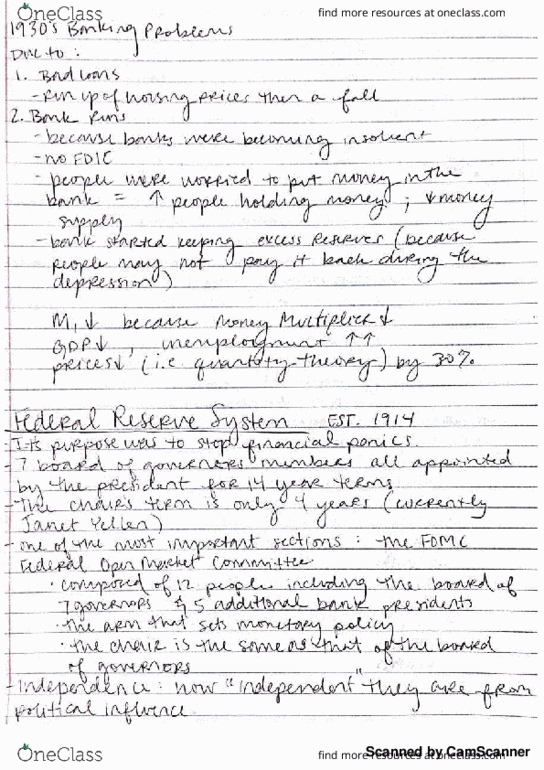 OneClass
find more resources at oneclass.com
1930's Banking Problems
Due to :
1. Bad loans
- run up of housing prices then a fall
2. Bank Runs
- because banks were becoming insolvent
- no FDIC
- people were worried to put money in the
bank = ↑ people holding money ; ↓ money
supply
- bank started keeping excess reserves (because
people may not pay it back during the
depression)
M₁↓ because money Multiplier ↓
GDP↓ , unemployment ↑↑
prices↓ (i.e quantity theory) by 30%
Federal Reserve System EST. 1914
- Its purpose was to stop financial panics
- 7 board of governors members all appointed
by the president for 14 year terms
- The chair's term is only 4 years (currently
Janet Yellen)
- one of the most important sections : the FOMC
Federal Open Market Committee
• composed of 12 people including the board of
7 governors & 5 additional bank presidents
• the arm that sets monetary policy
• the chair is the same as that of the board
of governors
- Independence : how "independent" they are from
political influence
OneClass
find more resources at oneclass.com
Scanned by CamScanner